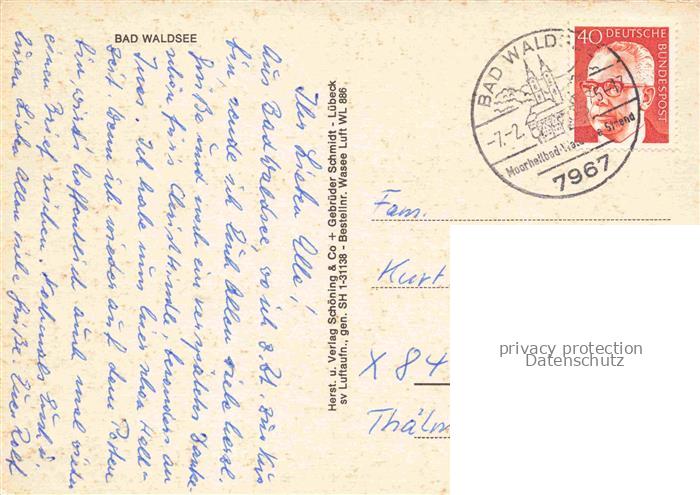 BAD WALDSEE
Ihr Lieben Alle!
Aus Bad Waldsee, wo ich z. Zt. zur Kur
bin, sende ich Euch Allen viele herzl.
Grüße und noch ein verspätetes Danke-
schön fürs Christkindle, besonders an
Ines. Ich habe nun hier etwas
Zeit. Wenn ich wieder auf dem Posten
bin wird's hoffentlich auch mal wieder
einen Brief geben. Nochmals Euch
lieben Allen viele Grüße Euer Rolf
Herst. u. Verlag Schöning & Co + Gebrüder Schmidt - Lübeck
sv Luftaufn., gen. SH 1-31138 - Bestellnr. Wasee Luft WL 886
BAD WALDSEE
-7.-2.
Moorheilbad
7967
40 DEUTSCHE
BUNDESPOST
Fam.
Kurt
X 84
Thälm
privacy protection
Datenschutz